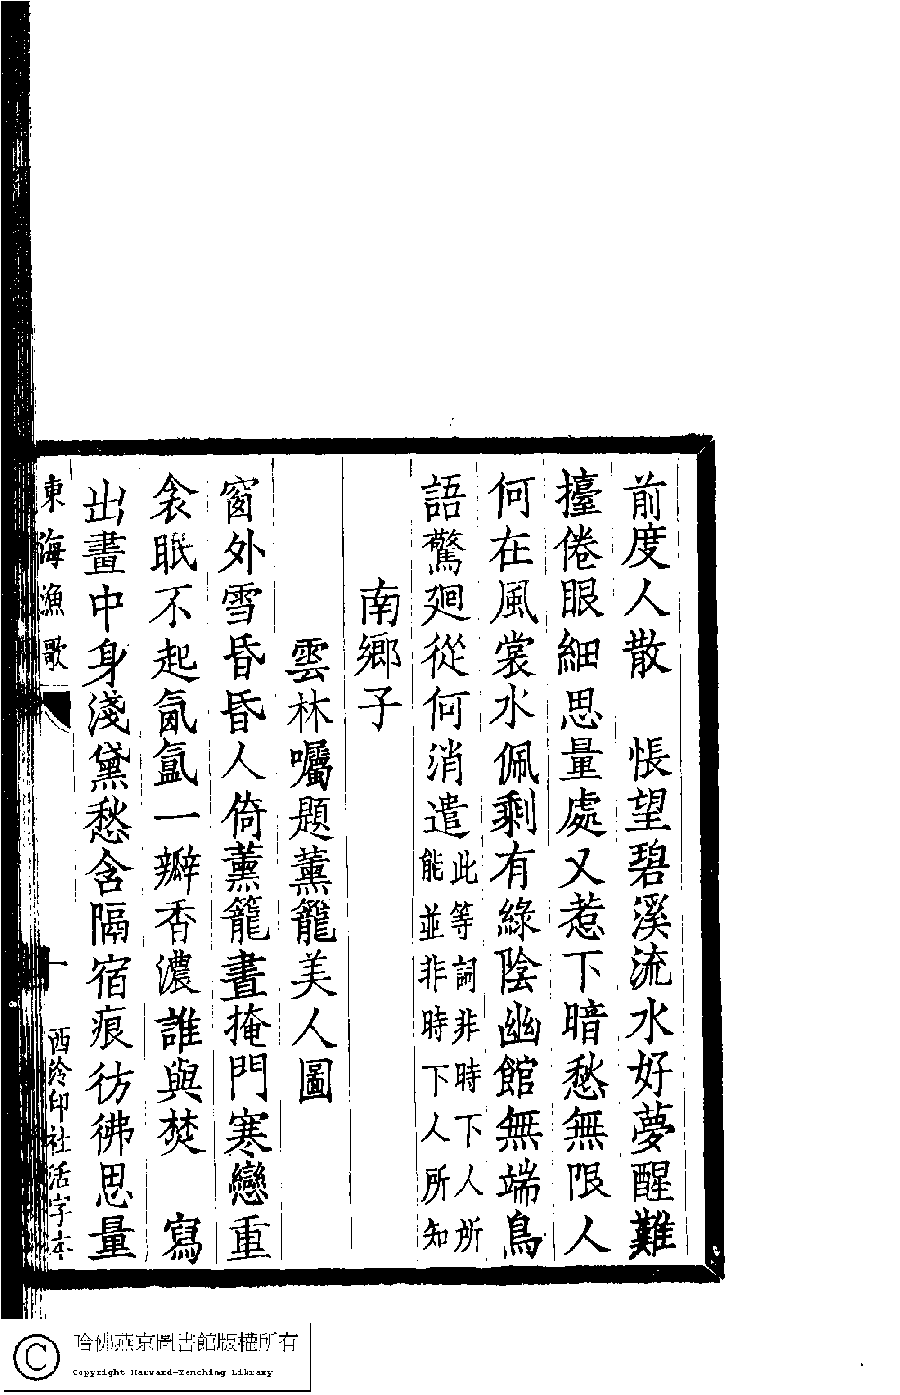 前度人散　悵望碧溪流水好夢醒難
擡倦眼細思量處又惹下暗愁無限人
何在風裳水佩剩有綠陰幽館無端鳥
語驚廻從何消遣此等詞非時下人所
能並非時下人所知
南鄉子
雲林囑題薰籠美人圖
窗外雪昏昏人倚薰籠晝掩門寒戀重
衾眠不起氤氳一瓣香濃誰與焚　寫
出畫中身淺黛愁含隔宿痕彷彿思量
東海漁歌
一
西泠印社活字本
哈佛燕京圖書館版權所有
Copyright Harvard-Yenching Library